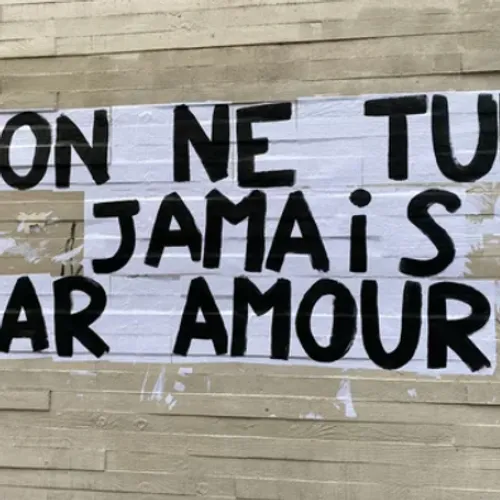 ON NE TU
JAMAiS
AR AMOUR